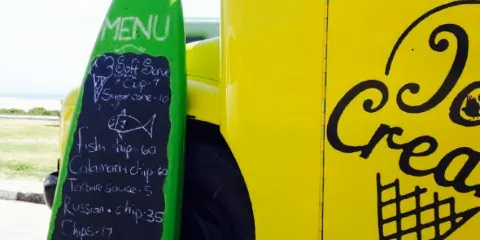 MENU
Soft Serve
Cup - 7
Sugar cone - 10
fish chip - 60
Calamari chip - 60
Tartare sauce - 5
Russian + chip 35
Chips - 17
Ice
Cream